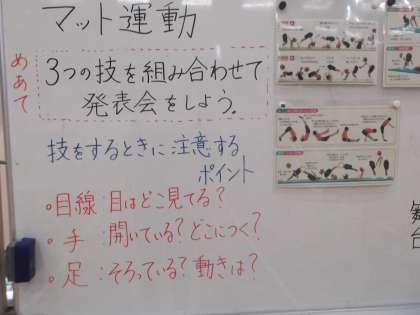 マット運動
めあて
3つの技を組み合わせて
発表会をしよう。
技をするときに注意する
ポイント
○目線：目はどこ見てる？
○手：開いている？どこにつく？
○足：そろっている？動きは？
台